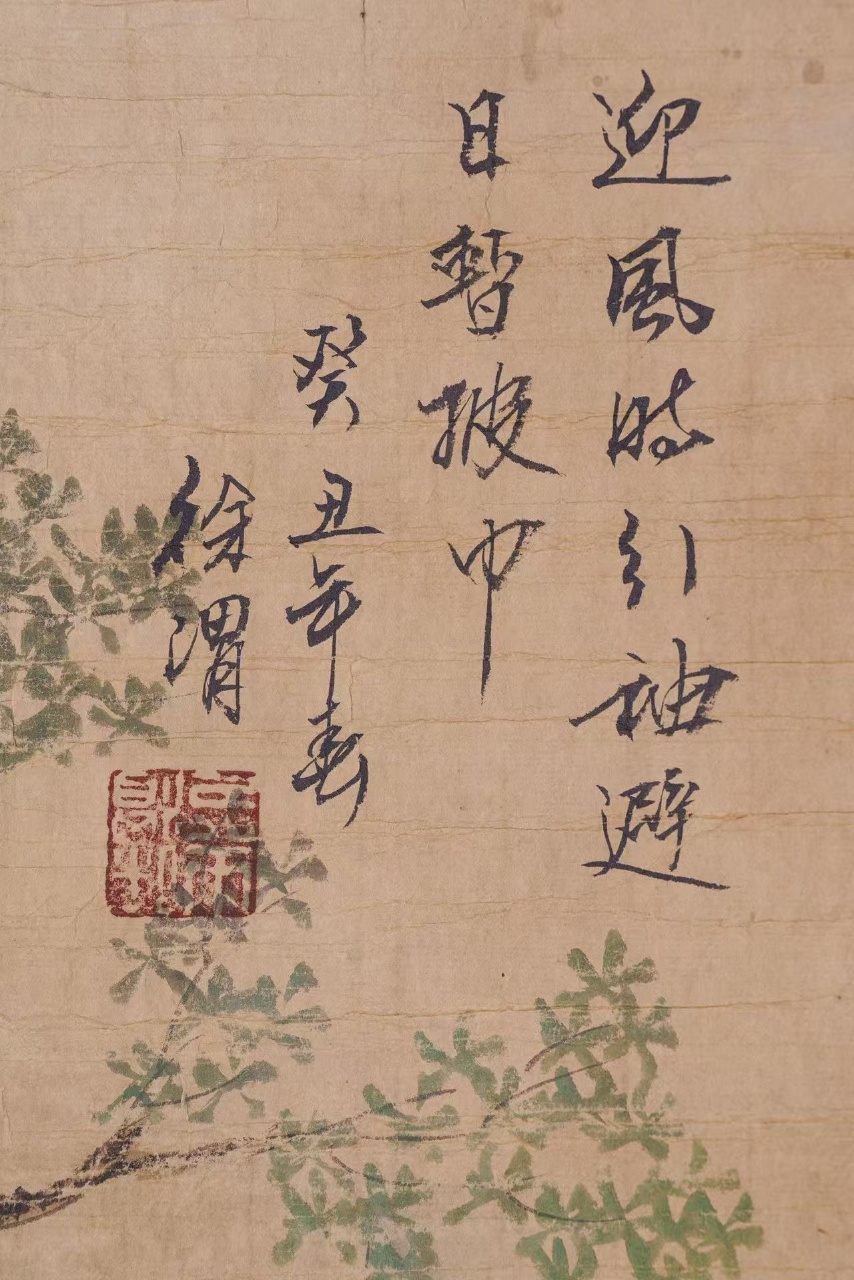 迎風時引袖避
日暫披巾
癸丑年春
徐渭